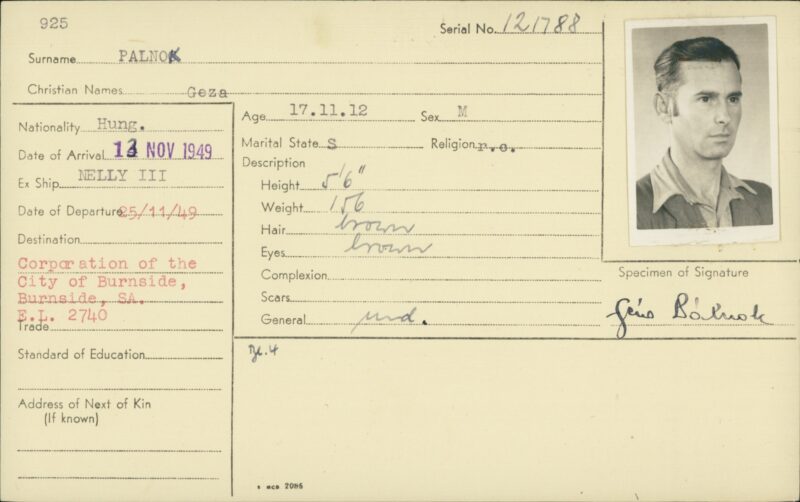 925
Serial No. 121788
Surname PALNOK
Christian Names Geza
Nationality Hung.
Date of Arrival 13 NOV 1949
Ex Ship NELLY III
Date of Departure 25/11/49
Destination
Corporation of the
City of Burnside,
Burnside, SA.
E.L. 2740
Trade
Standard of Education
Address of Next of Kin
(If known)
Age 17.11.12 Sex M
Marital State S Religion r.c.
Description
Height 5'6"
Weight 156
Hair brown
Eyes brown
Complexion
Scars
General
Bl. 4
2086
Specimen of Signature